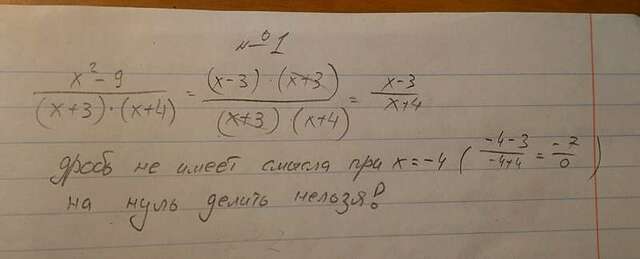 №1
x²-9/(x+3)·(x+4) = (x-3)·(x+3)/(x+3)(x+4) = x-3/x+4
дробь не имеет смысла при x=-4 (-4-3/-4+4 = -7/0)
на нуль делить нельзя!